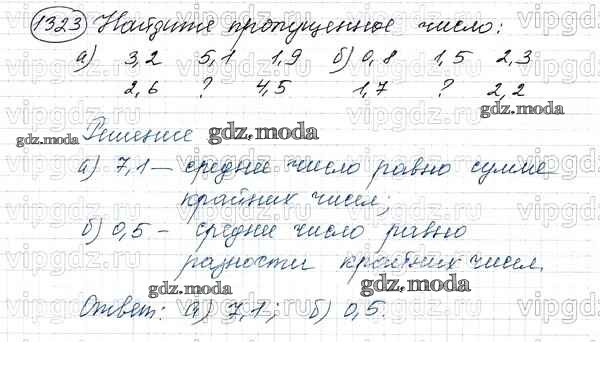 1323 Найдите пропущенное число:
а) 3,2 5,1 1,9 б) 0,8 1,5 2,3
2,6 ? 4,5 1,7 ? 2,2
gdz.moda
Решение gdz.moda
gdz.moda
а) 7,1 — среднее число равно сумме
крайних чисел;
б) 0,5 - среднее число равно
разности крайних чисел.
gdz.moda gdz.moda
Ответ: а) 7,1; б) 0,5.